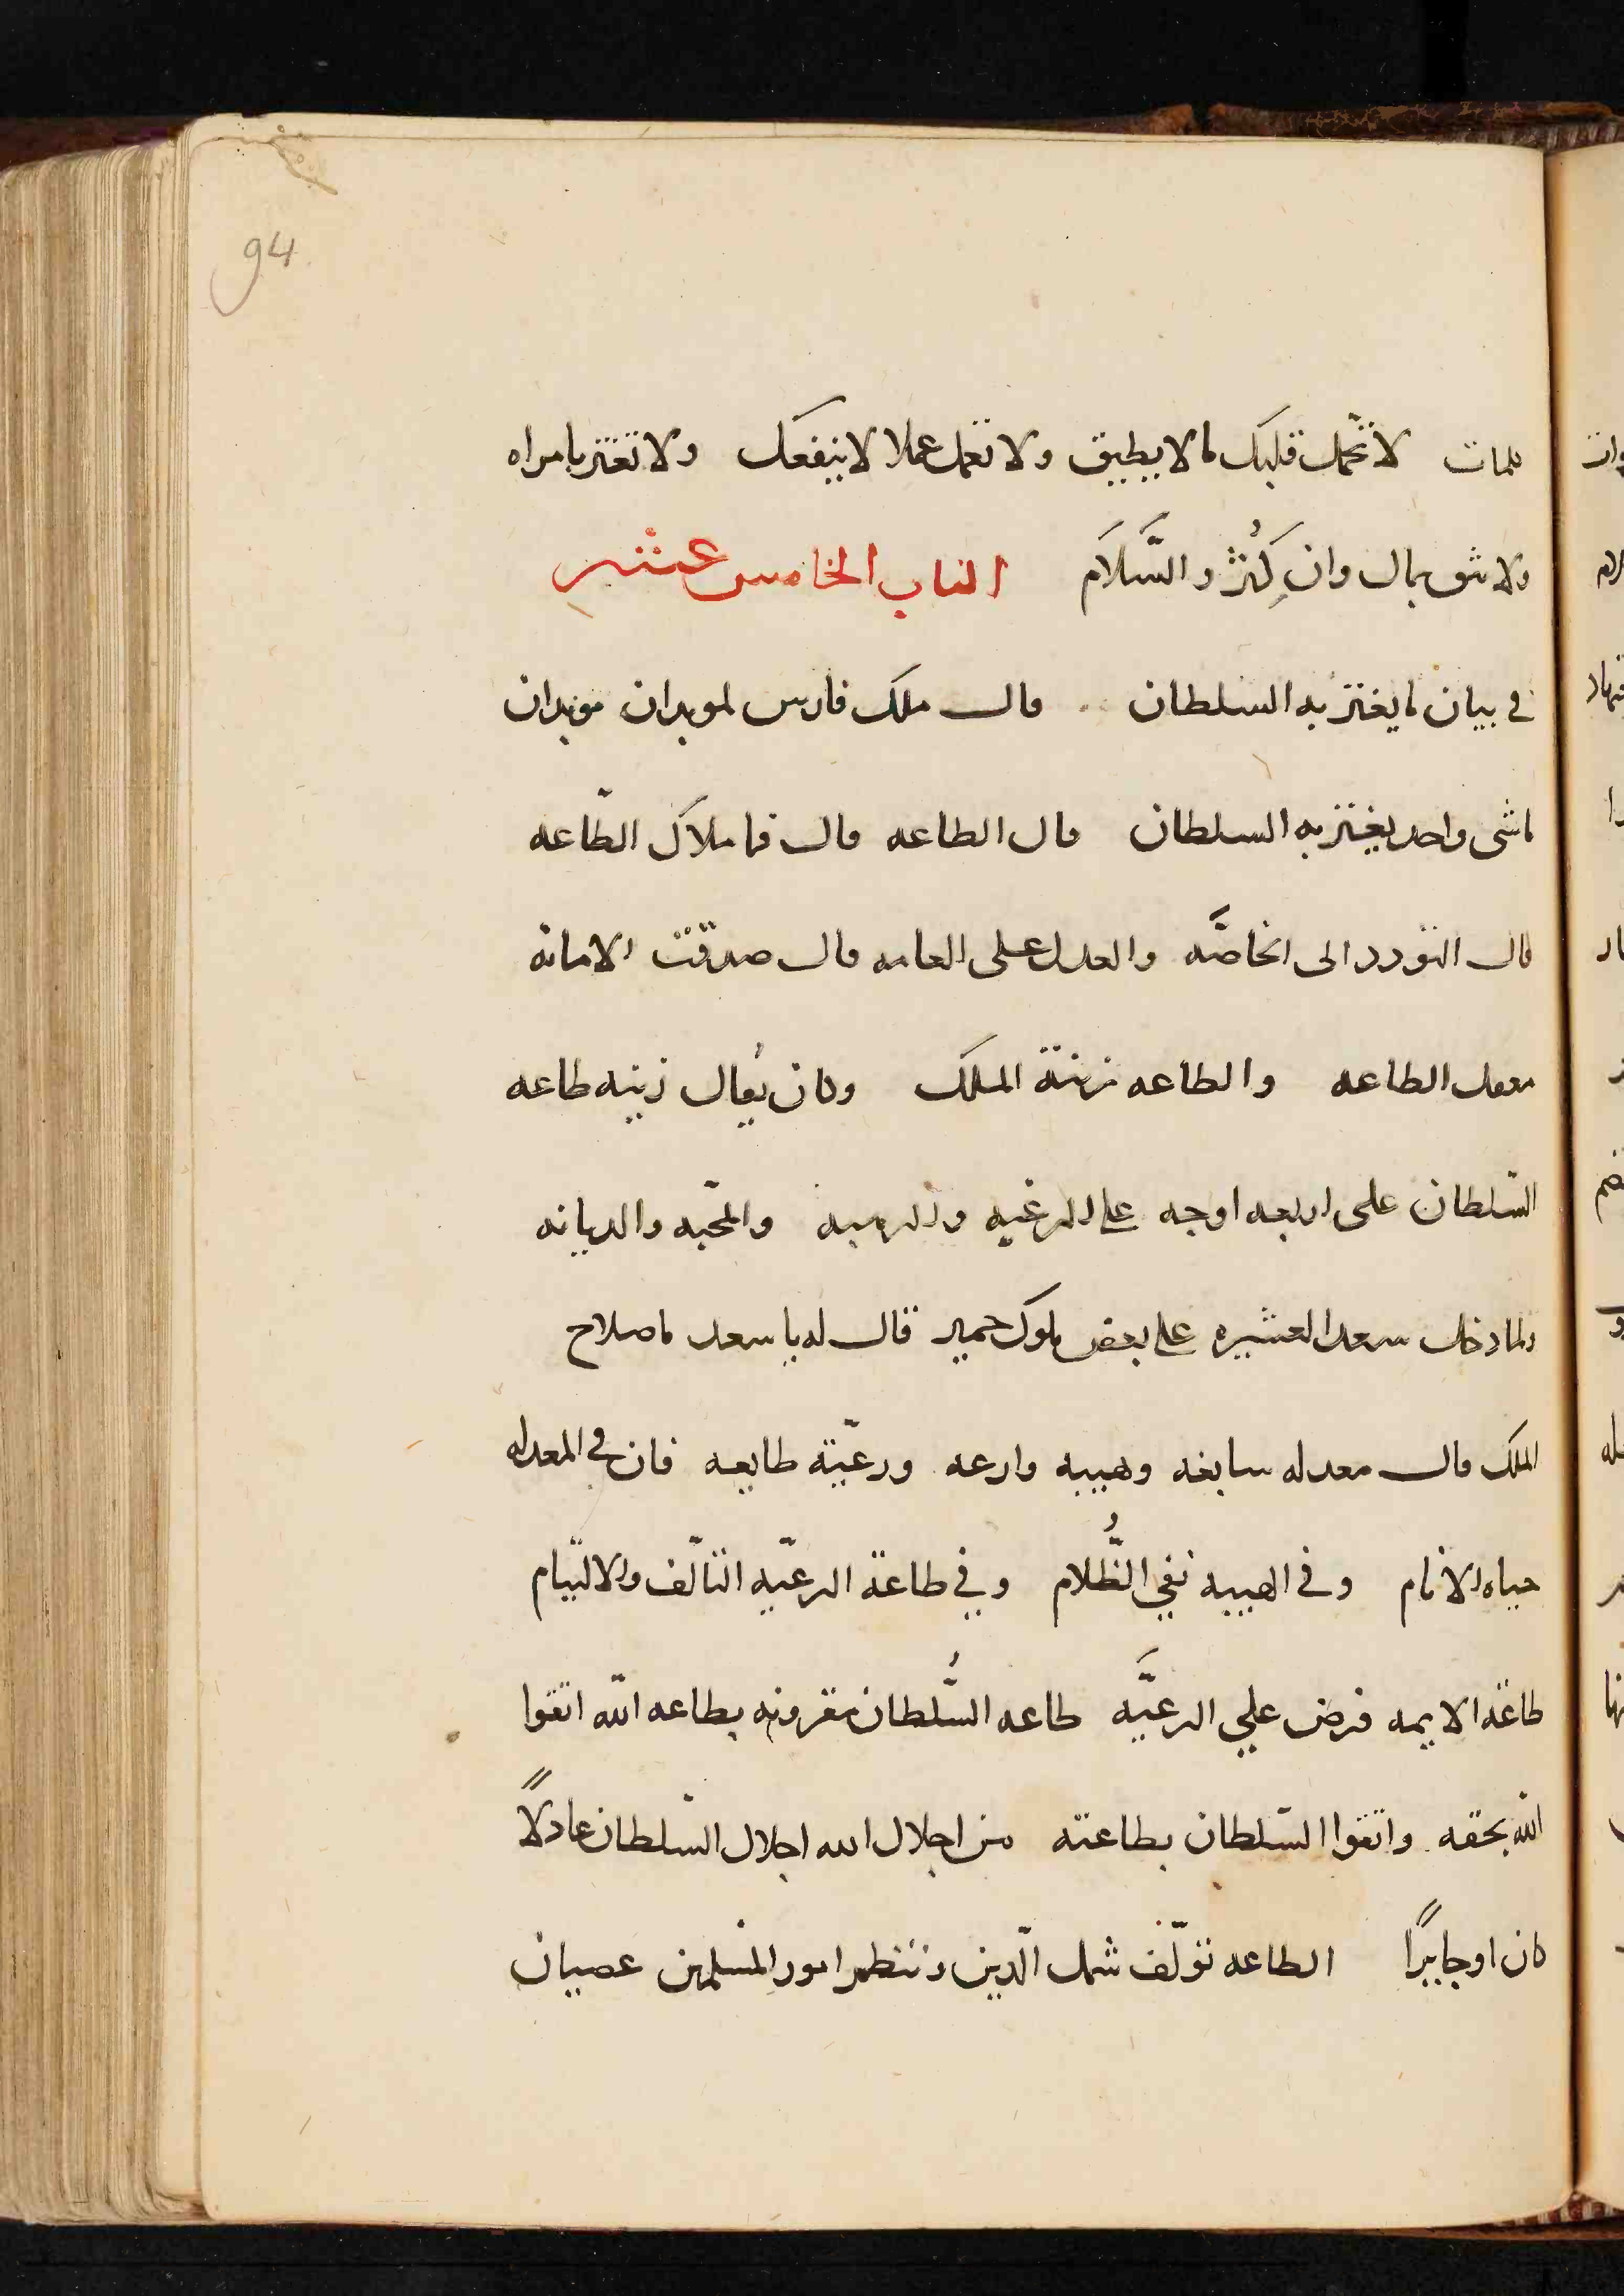 94
كلمات لا تحمل قلبك ما لا يطيق ولا تعمل عملا لا ينفعك ولا تغتر بامراه
ولا تثق بمال وان كَثُرَ والسَّلَام الباب الخامس عشر
في بيان ما يغتر به السلطان قال ملك فارس لموبدان موبذان
ما شى واحد يغتر به السلطان قال الطاعه قال فما ملاك الطّاعه
قال التودد الى الخاصَّه والعدل على العامه قال صدقت الامانه
معقل الطاعه والطاعه زينة الملك وكان يُقال زينه طاعه
السّلطان على اربعه اوجه على الرغبه والرهبه والمحّبه والديانه
ولما دخل سعد العشيره على بعض ملوك حمير قال له يا سعد ما صلاح
الملك قال معدله سابغه وهيبه وارعه ورعيّة طايعه فان في المعدله
حياه الانام وفى الهيبه نفي الظُّلام وفي طاعة الرعيّه التالّف والالتيام
طاعة الايمه فرض علي الرعيَّه طاعه السُّلطان مقرونه بطاعه الله اتقوا
الله بحقه واتقوا السّلطان بطاعته من اجلال الله اجلال السّلطان عادلًا
كان او جايرًا الطاعه تؤلّف شمل الدّين وتنظم امور المسْلمين عصيان